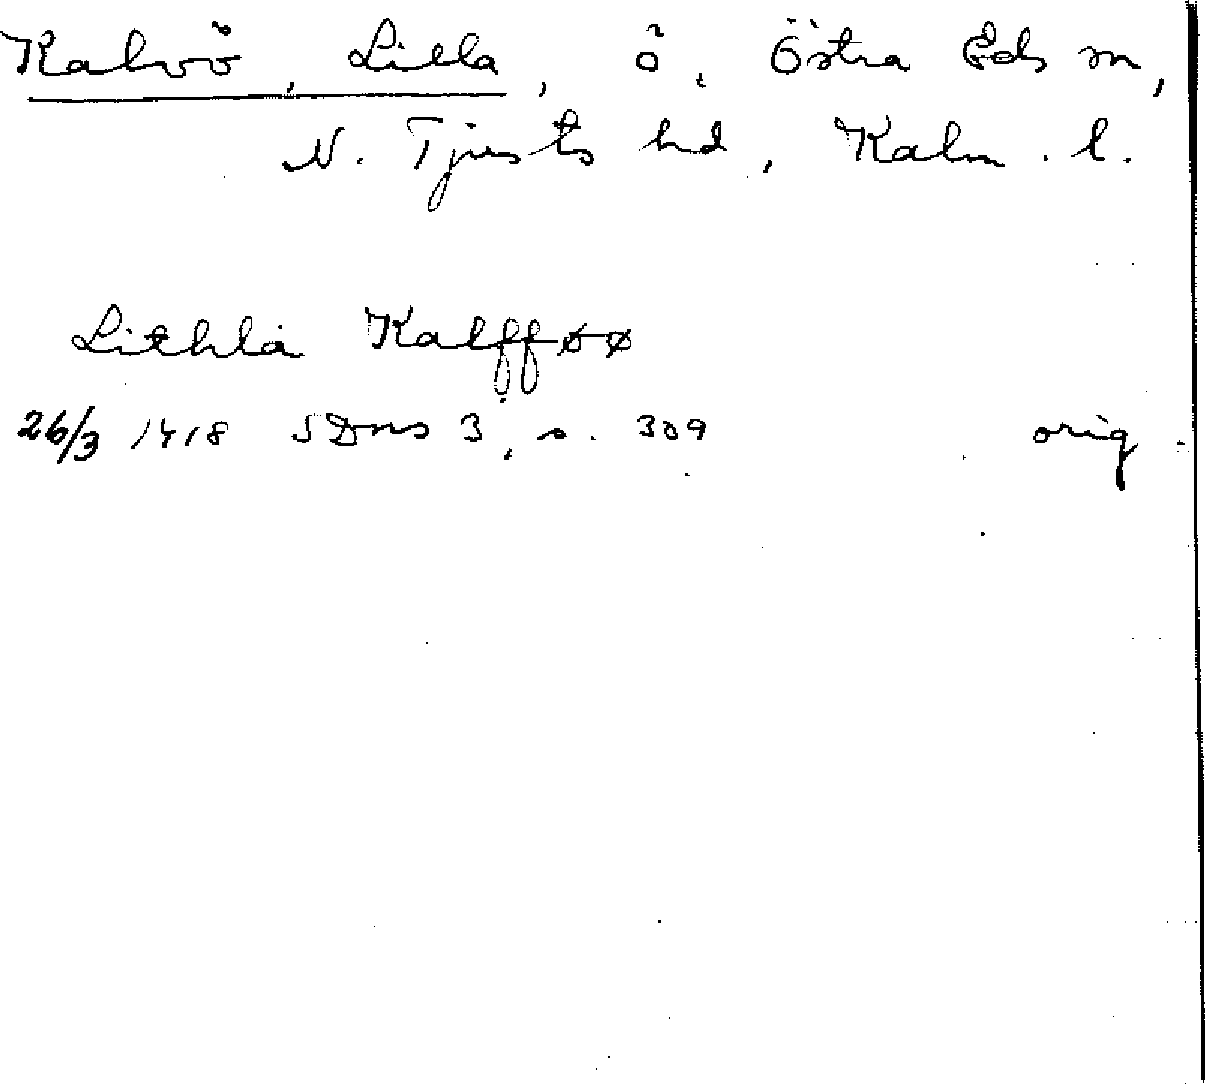 Kalvö, Lilla, ö, Östra Eds sn,
N. Tjusts hd, Kalm. l.
Lithla Kalfføø
26/3 1418 SDns 3, s. 309 orig.